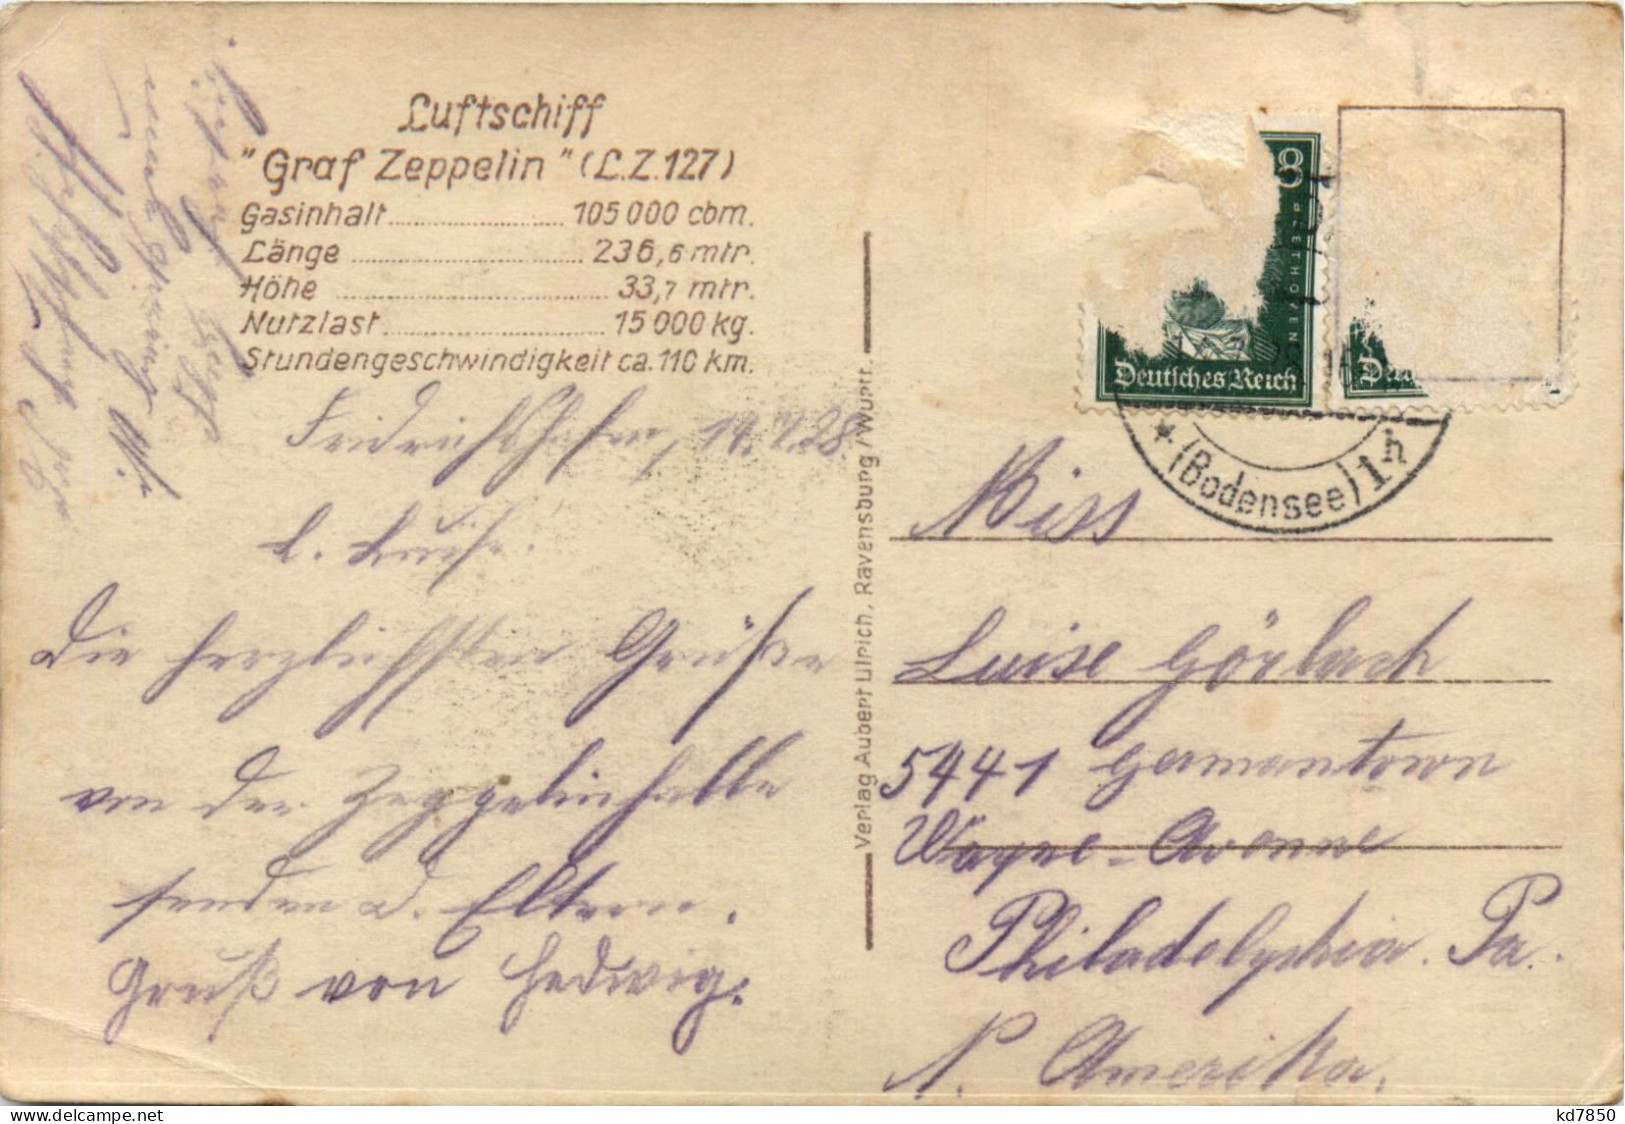 Luftschiff
"Graf Zeppelin" (L.Z.127)
Gasinhalt ........................ 105 000 cbm.
Länge ................................ 236,6 mtr.
Höhe ..................................... 33,7 mtr.
Nutzlast ............................... 15 000 kg.
Stundengeschwindigkeit ca. 110 km.
Friedrichshafen,
L. Luise.
Die herzlichsten Grüße
von der Zeppelinhalle
senden d. Eltern.
Gruß von Hedwig.
Verlag Aubert Ulrich, Ravensburg/Württ.
8
BEETHOVEN
Deutsches Reich
* (Bodensee) 1h
Miss
Luise Görbach
5441 Germantown
Wayne-Avenue
Philadelphia. Pa.
N. Amerika.
kd7850